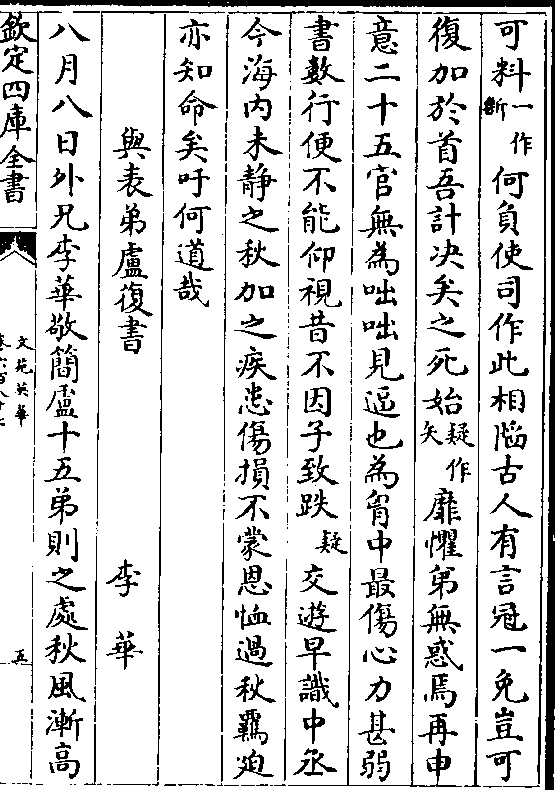 可料一作斷何負使司作此相陷古人有言冠一免豈可
復加於首吾計决矣之死始疑作矢靡懼弟無惑焉再申
意二十五官無為咄咄見逼也為胷中最傷心力甚弱
書數行便不能仰視昔不因子致跌疑交遊早識中丞
今海内未静之秋加之疾患傷損不蒙恩恤過秋羈廹
亦知命矣吁何道哉
與表弟盧復書　李華
八月八日外兄李華敬簡盧十五弟則之處秋風漸高
欽定四庫全書
文苑英華
卷六百八十七
五